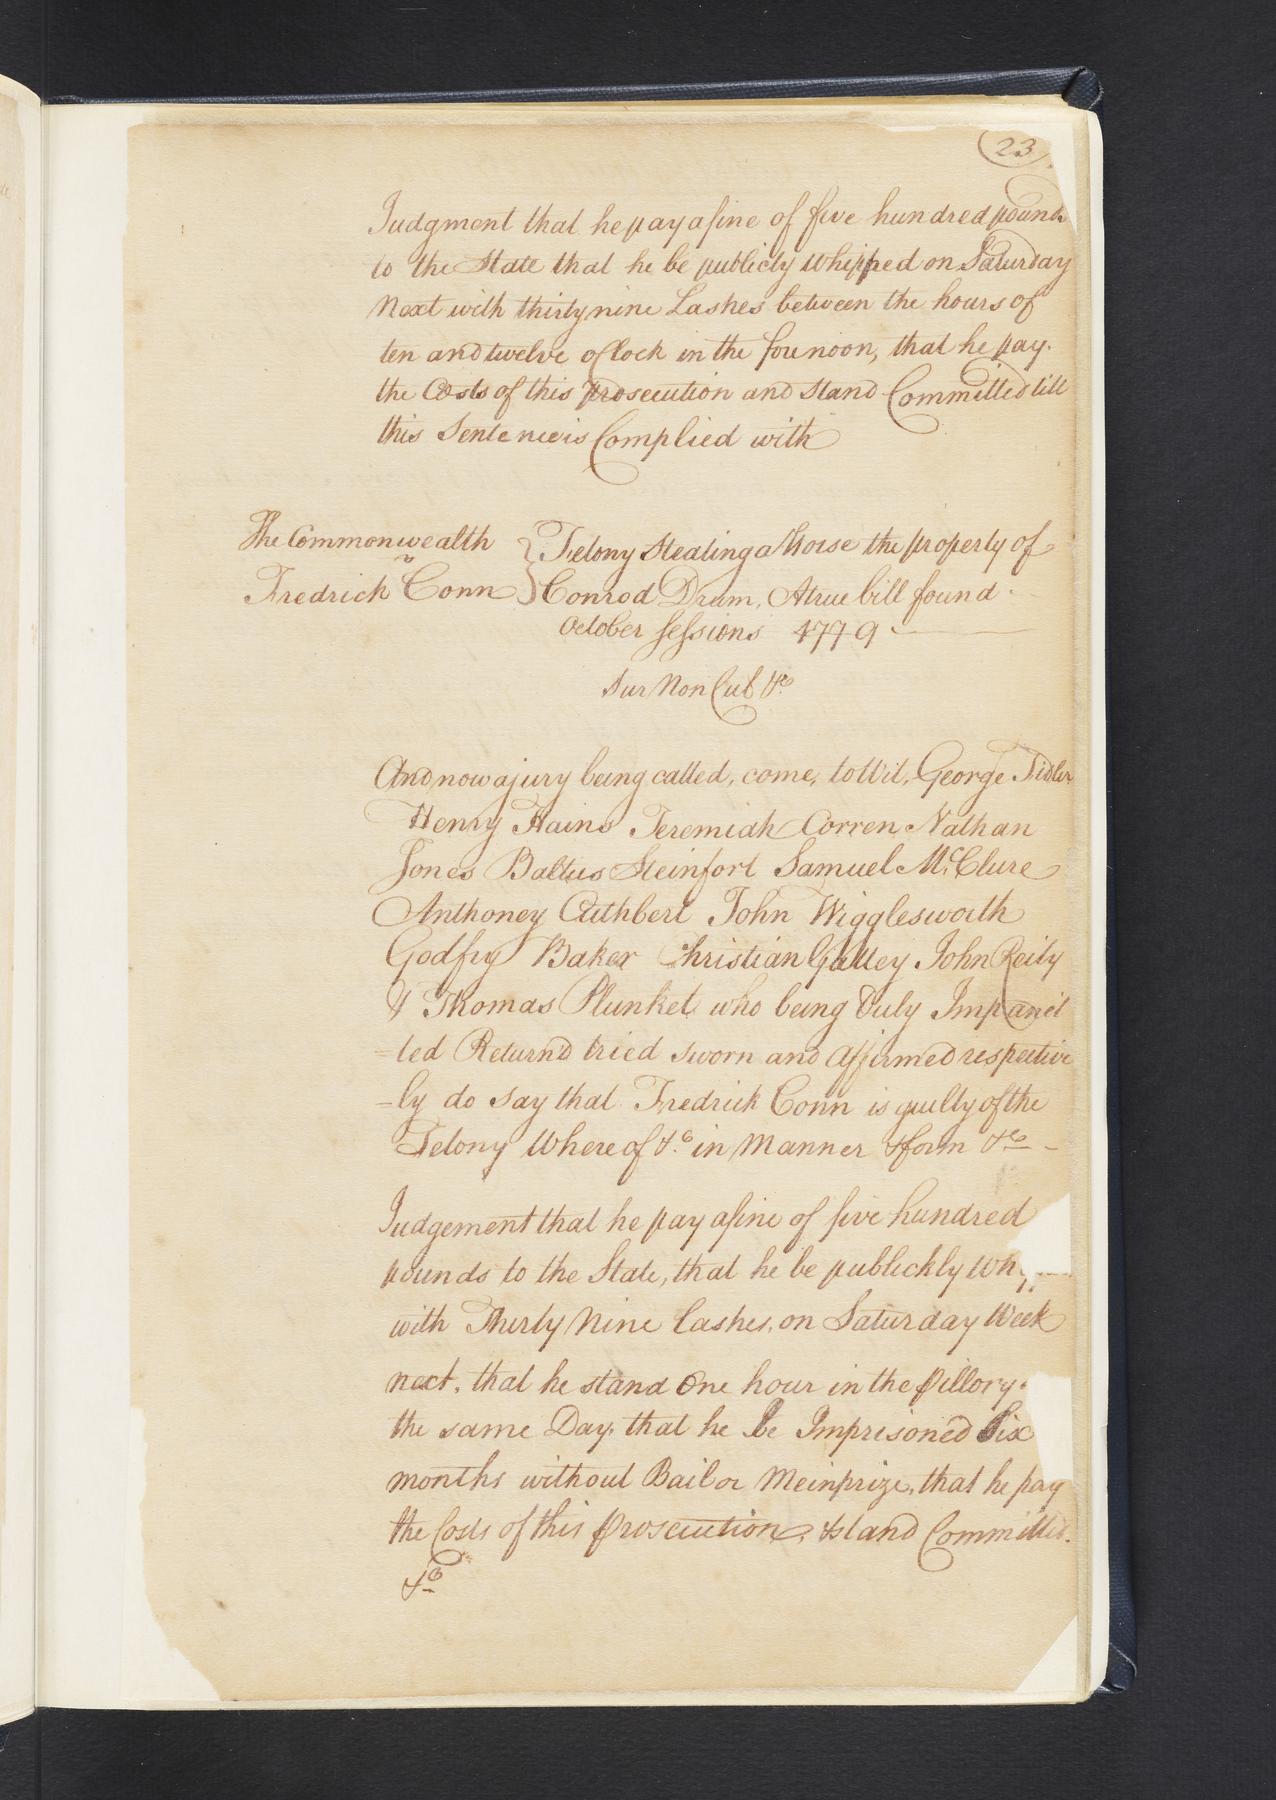 23
Judgment that he pay a fine of five hundred pounds
to the State that he be publicly whipped on Saturday
Next with thirty nine Lashes between the hours of
ten and twelve oClock in the forenoon, that he pay
the Costs of this Prosecution and Stand Committed till
this Sentence is Complied with
The Commonwealth
v
Fredrick Conn
Felony Stealing a Horse the property of
Conrod Drum, A true bill found
October Sessions 1779
Sur Non Cul &c.
And now a jury being called, come, to Wit, George Fidler
Henry Hains Jeremiah Corren Nathan
Jones Baltus Steinfort Samuel McClure
Anthoney Cuthbert John Wigglesworth
Godfry Baker Christian Galley John Reily
& Thomas Plunket who being Duly Impanel
=led Return'd tried sworn and affirmed respective
=ly do say that Fredrick Conn is guilty of the
Felony Where of &c. in Manner & form &c
Judgement that he pay a fine of five hundred
pounds to the State, that he be publickly
with Thirty Nine lashes, on Saturday Week
next, that he stand One hour in the Pillory
the same Day, that he be Imprisoned Six
months without Bail or Meinprize, that he pay
the Costs of this Prosecution, & stand Committed.
&c